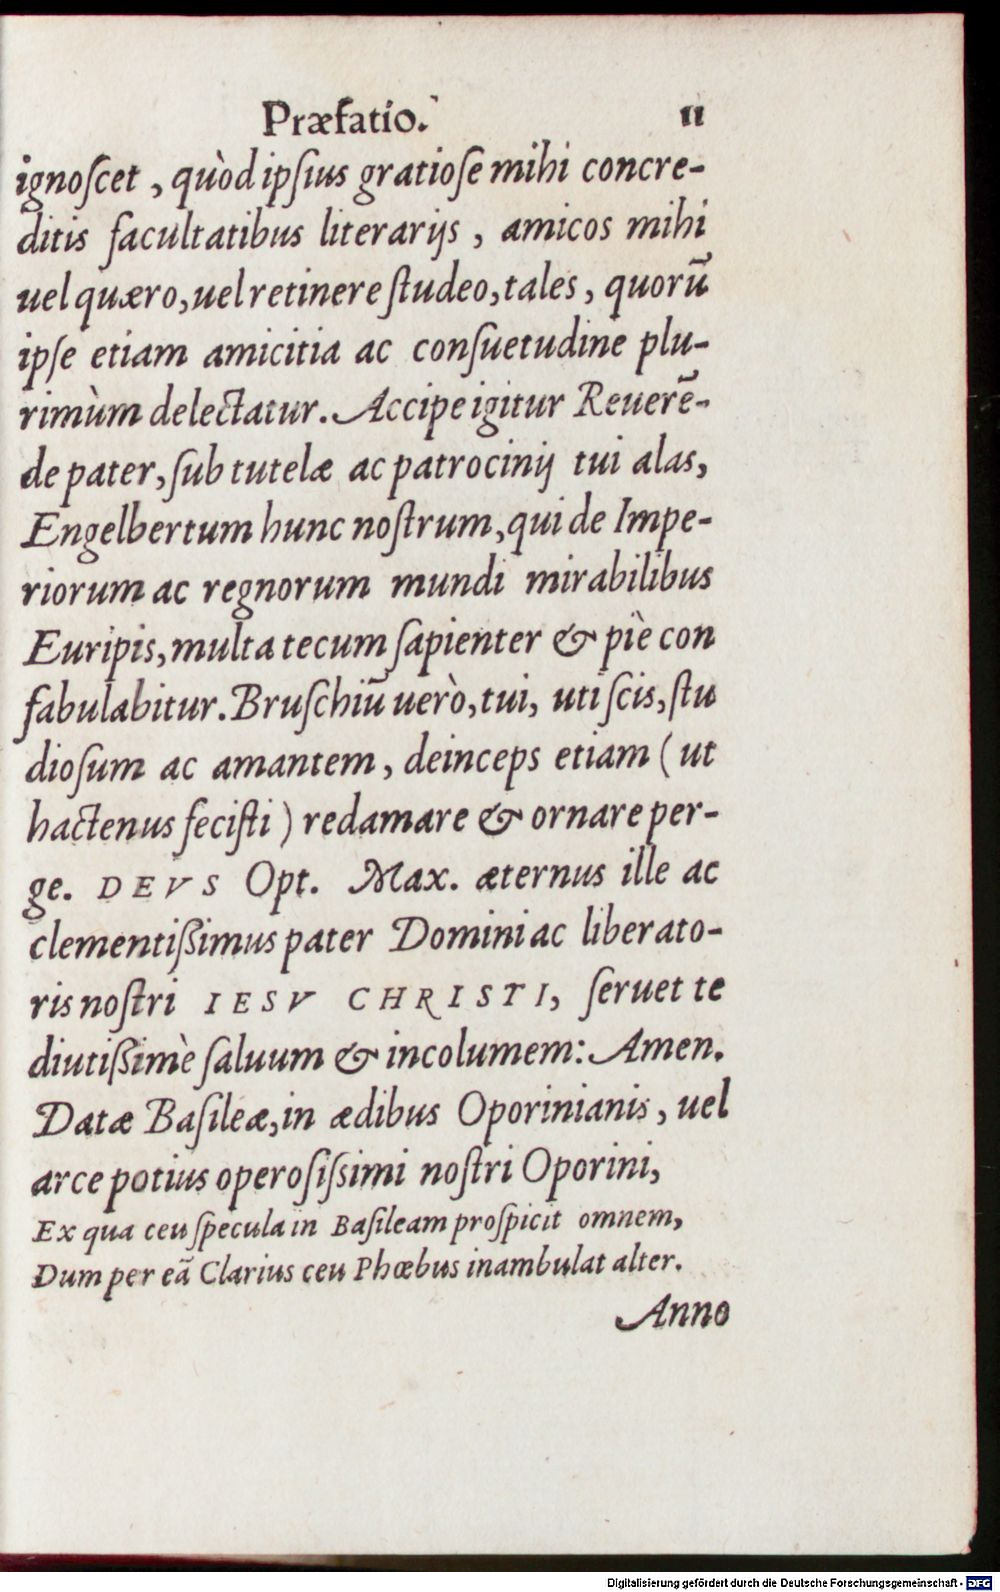 Præfatio. 11
ignoſcet , quòd ipſius gratioſe mihi concre-
ditis facultatibus literarijs , amicos mihi
uel quæro, uel retinere ſtudeo, tales , quorū
ipſe etiam amicitia ac conſuetudine plu-
rimùm delectatur. Accipe igitur Reuerē-
de pater, ſub tutelæ ac patrocinij tui alas,
Engelbertum hunc noſtrum, qui de Impe-
riorum ac regnorum mundi mirabilibus
Euripis, multa tecum ſapienter & piè con
fabulabitur. Bruſchiū uerò, tui, uti ſcis, ſtu
dioſum ac amantem, deinceps etiam ( ut
hactenus feciſti ) redamare & ornare per-
ge. DEVS Opt. Max. æternus ille ac
clementißimus pater Domini ac liberato-
ris noſtri IESV CHRISTI, ſeruet te
diutißimè ſaluum & incolumem: Amen.
Datæ Baſileæ, in ædibus Oporinianis , uel
arce potius operoſiſsimi noſtri Oporini,
Ex qua ceu ſpecula in Baſileam proſpicit omnem,
Dum per eā Clarius ceu Phœbus inambulat alter.
Anno
Digitalisierung gefördert durch die Deutsche Forschungsgemeinschaft - DFG